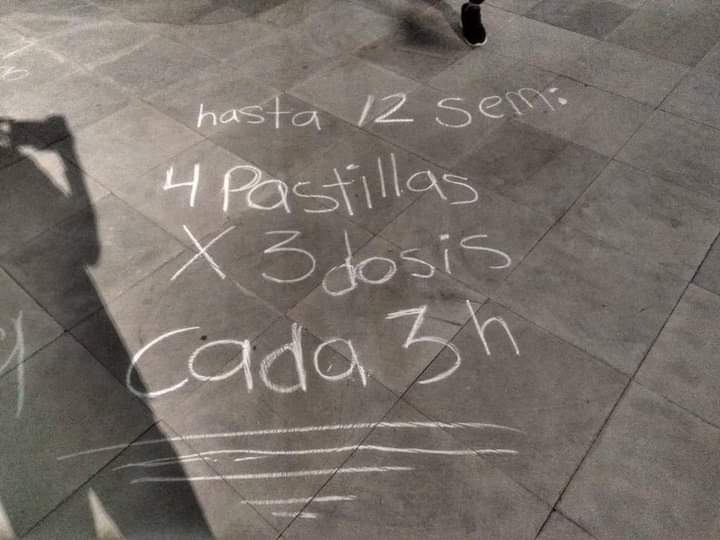 hasta 12 sem:
4 Pastillas
X 3 dosis
Cada 3h